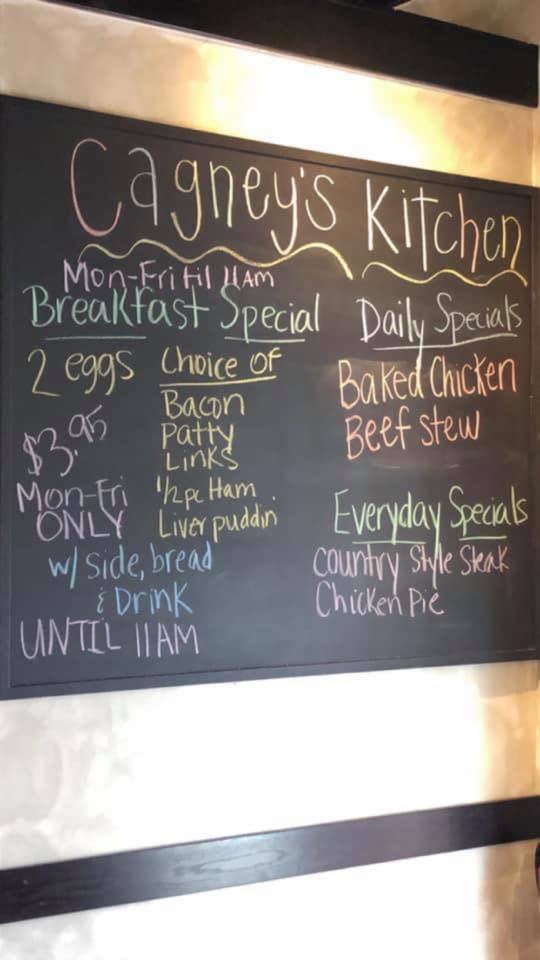 Cagney's Kitchen
Mon-Fri til 11AM
Breakfast Special
2 eggs
$3.95
Mon-Fri
ONLY
Choice OF
Bacon
Patty
Links
1/2 pc Ham
Liver puddin
w/ side, bread
& Drink
UNTIL 11AM
Daily Specials
Baked Chicken
Beef stew
Everyday Specials
Country Style Steak
Chicken Pie